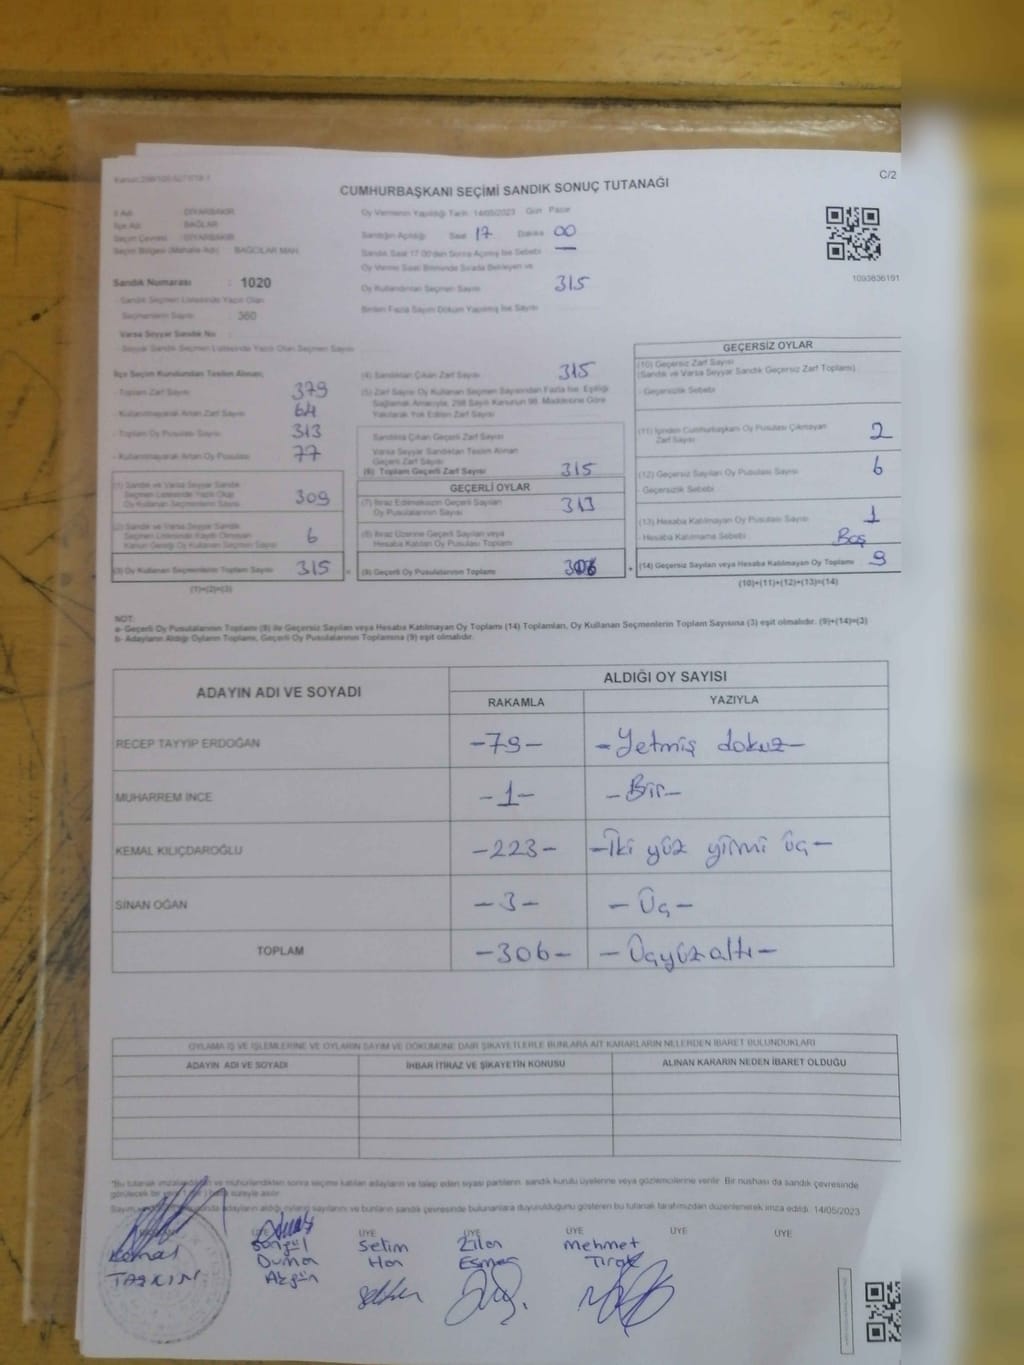 C/2
CUMHURBAŞKANI SEÇİMİ SANDIK SONUÇ TUTANAĞI
İl Adı : DİYARBAKIR
İlçe Adı : BAĞLAR
Seçim Çevresi : DİYARBAKIR
Seçim Bölgesi (Mahalle Adı) : BAĞCILAR MAH.
Oy Vermenin Yapıldığı Tarih: 14/05/2023 Gün: Pazar
Sandığın Açıldığı Saat 17 Dakika 00
Sandık Saat 17.00'den Sonra Açılmış İse Sebebi —
Oy Verme Saati Bitiminde Sırada Bekleyen ve
Oy Kullandırılan Seçmen Sayısı 315
Birden Fazla Sayım Döküm Yapılmış İse Sayısı
1093836191
Sandık Numarası : 1020
- Sandık Seçmen Listesinde Yazılı Olan
Seçmenlerin Sayısı : 360
Varsa Seyyar Sandık No
- Seyyar Sandık Seçmen Listesinde Yazılı Olan Seçmen Sayısı
İlçe Seçim Kurulundan Teslim Alınan;
- Toplam Zarf Sayısı 379
- Kullanılmayarak Artan Zarf Sayısı 64
- Toplam Oy Pusulası Sayısı 313
- Kullanılmayarak Artan Oy Pusulası 77
(1) Sandık ve Varsa Seyyar Sandık
Seçmen Listesinde Yazılı Olup
Oy Kullanan Seçmenlerin Sayısı 309
(2) Sandık ve Varsa Seyyar Sandık
Seçmen Listesinde Kayıtlı Olmayan
Kanun Gereği Oy Kullanan Seçmen Sayısı 6
(3) Oy Kullanan Seçmenlerin Toplam Sayısı 315
(1)+(2)=(3)
(4) Sandıktan Çıkan Zarf Sayısı 315
(5) Zarf Sayısı Oy Kullanan Seçmen Sayısından Fazla İse, Eşitliği
Sağlamak Amacıyla, 298 Sayılı Kanunun 98. Maddesine Göre
Yakılarak Yok Edilen Zarf Sayısı
Sandıkta Çıkan Geçerli Zarf Sayısı
Varsa Seyyar Sandıktan Teslim Alınan
Geçerli Zarf Sayısı
(6) Toplam Geçerli Zarf Sayısı 315
GEÇERLİ OYLAR
(7) İtiraz Edilmeksizin Geçerli Sayılan
Oy Pusulalarının Sayısı 313
(8) İtiraz Üzerine Geçerli Sayılan veya
Hesaba Katılan Oy Pusulası Toplamı
(9) Geçerli Oy Pusulalarının Toplamı 306
GEÇERSİZ OYLAR
(10) Geçersiz Zarf Sayısı
(Sandık ve Varsa Seyyar Sandık Geçersiz Zarf Toplamı)
- Geçersizlik Sebebi
(11) İçinden Cumhurbaşkanı Oy Pusulası Çıkmayan
Zarf Sayısı 2
(12) Geçersiz Sayılan Oy Pusulası Sayısı 6
- Geçersizlik Sebebi
(13) Hesaba Katılmayan Oy Pusulası Sayısı 1
- Hesaba Katılmama Sebebi Boş
(14) Geçersiz Sayılan veya Hesaba Katılmayan Oy Toplamı 9
(10)+(11)+(12)+(13)=(14)
NOT:
a- Geçerli Oy Pusulalarının Toplamı (9) ile Geçersiz Sayılan veya Hesaba Katılmayan Oy Toplamı (14) Toplamları, Oy Kullanan Seçmenlerin Toplam Sayısına (3) eşit olmalıdır. (9)+(14)=(3)
b- Adayların Aldığı Oyların Toplamı, Geçerli Oy Pusulalarının Toplamına (9) eşit olmalıdır.
ADAYIN ADI VE SOYADI
ALDIĞI OY SAYISI
RAKAMLA YAZIYLA
RECEP TAYYİP ERDOĞAN -79- -Yetmiş dokuz-
MUHARREM İNCE -1- -Bir-
KEMAL KILIÇDAROĞLU -223- -İki yüz yirmi üç-
SİNAN OĞAN -3- -Üç-
TOPLAM -306- -Üçyüzaltı-
OYLAMA İŞ VE İŞLEMLERİNE VE OYLARIN SAYIM VE DÖKÜMÜNE DAİR ŞİKAYETLERLE BUNLARA AİT KARARLARIN NELERDEN İBARET BULUNDUKLARI
ADAYIN ADI VE SOYADI İHBAR İTİRAZ VE ŞİKAYETİN KONUSU ALINAN KARARIN NEDEN İBARET OLDUĞU
ve mühürlendikten sonra seçime katılan adayların ve talep eden siyasi partilerin, sandık kurulu üyelerine veya gözlemcilerine verilir. Bir nüshası da sandık çevresinde
adayların aldığı oyların sayısını ve bunların sandık çevresinde bulunanlara duyurulduğunu gösteren bu tutanak tarafımızdan düzenlenerek imza edildi. 14/05/2023
ÜYE ÜYE ÜYE ÜYE ÜYE ÜYE
Kemal Songül Selim Zilan Mehmet
TAŞKIN Duman Han Esmer Tırak
Akgün